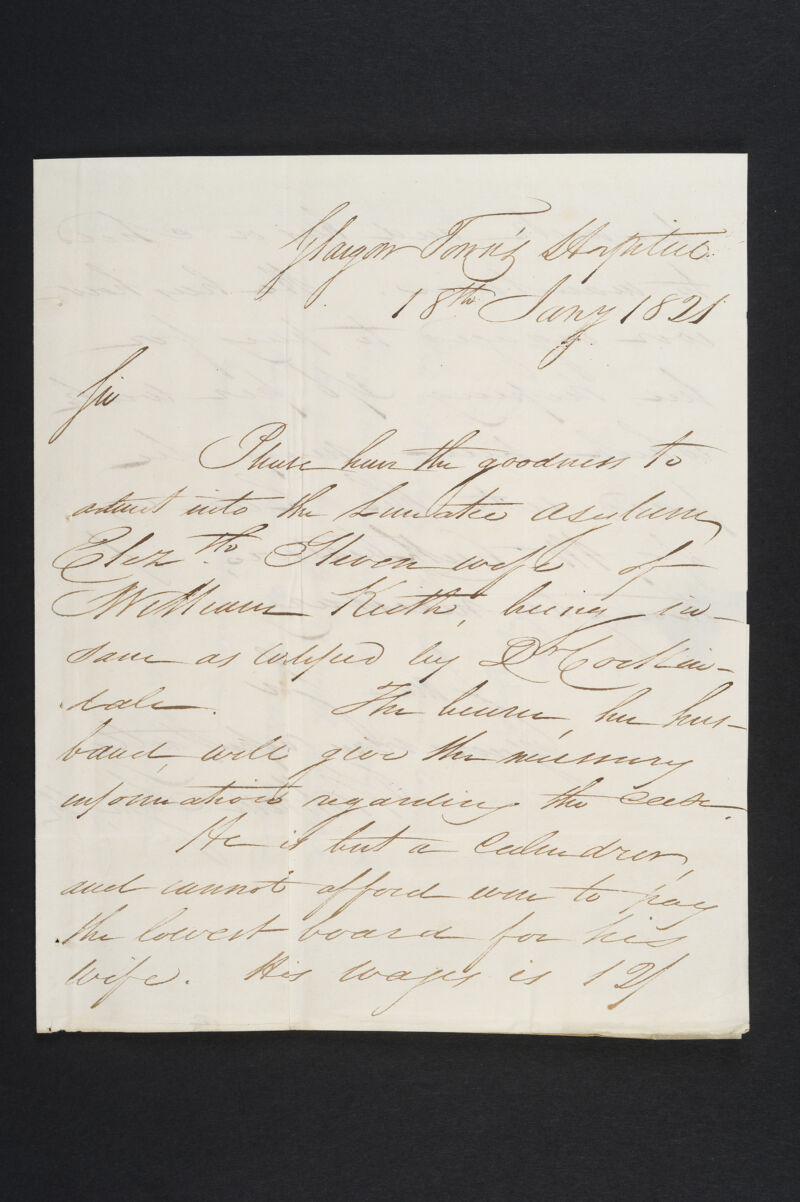 Glasgow Town's Hospital
18th Jany 1821
Sir
Please have the goodness to
admit into the Lunatic Asylum
Elizth. Steven wife of
William Keith, being in-
sane as certified by Dr Corkin-
dale. The bearer, her hus-
band, will give the necessary
information regarding the case.
He is but a calendrer,
and cannot afford even to pay
the lowest board for his
wife. His wages is 12/